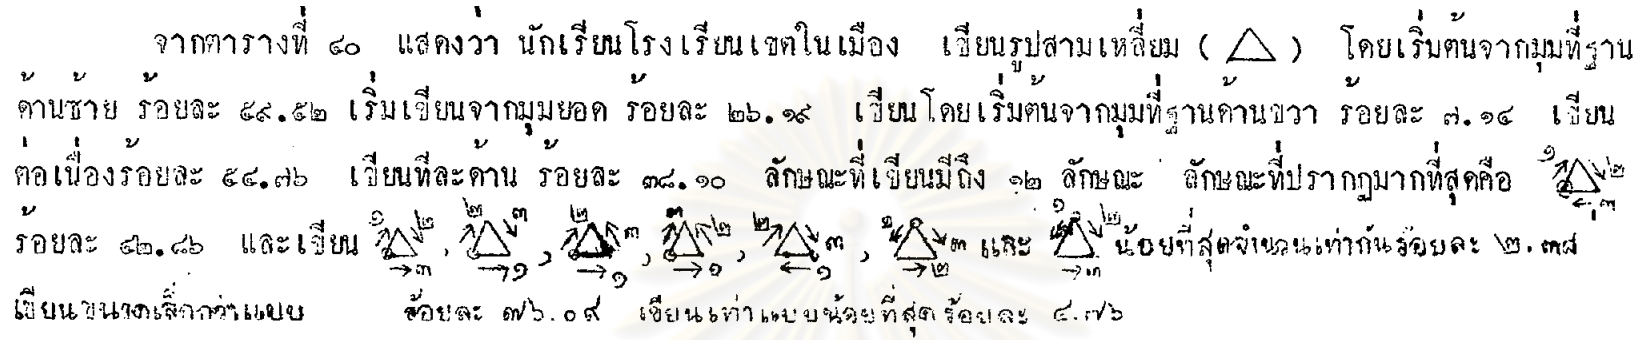 จากตารางที่ ๔๐ แสดงว่า นักเรียนโรงเรียนเขตในเมือง เขียนรูปสามเหลี่ยม ( △ ) โดยเริ่มต้นจากมุมที่ฐาน
ด้านซ้าย ร้อยละ ๕๙.๕๒ เริ่มเขียนจากมุมยอด ร้อยละ ๒๖.๑๙ เขียนโดยเริ่มต้นจากมุมที่ฐานด้านขวา ร้อยละ ๗.๑๔ เขียน
ต่อเนื่องร้อยละ ๕๔.๗๖ เขียนทีละด้าน ร้อยละ ๓๘.๑๐ ลักษณะที่เขียนมีถึง ๑๒ ลักษณะ ลักษณะที่ปรากฏมากที่สุดคือ ๑ ๒ ๓
ร้อยละ ๔๒.๘๖ และเขียน ๑ ๒ ๓ , ๒ ๓ ๑ , ๒ ๓ ๑ , ๓ ๒ ๑ , ๒ ๓ ๑ , ๑ ๓ ๒ และ ๑ ๒ ๓ น้อยที่สุดจำนวนเท่ากันร้อยละ ๒.๓๘
เขียนขนาดเล็กกว่าแบบ ร้อยละ ๗๖.๐๙ เขียนเท่าแบบน้อยที่สุด ร้อยละ ๔.๗๖